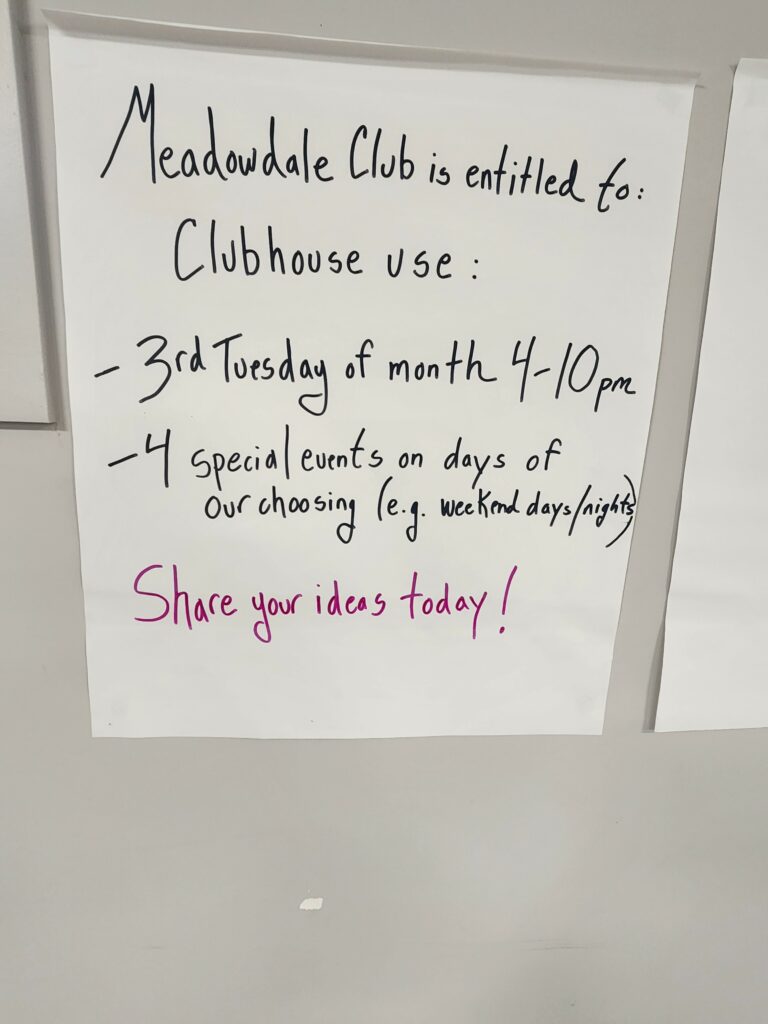 Meadowdale Club is entitled to:
Clubhouse use:
- 3rd Tuesday of month 4-10pm
- 4 special events on days of
our choosing (e.g. weekend days/nights)
Share your ideas today!